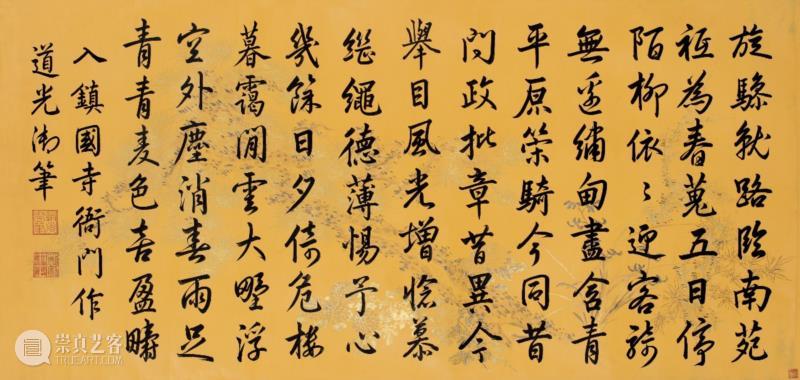 旋驂就路臨南苑
祗為春蒐五日停
陌柳依〻迎客騎
無邊繡甸盡含青
平原策騎今同昔
問政批章昔異今
舉目風光增憶慕
繼繩德薄惕予心
幾餘日夕倚危樓
暮靄閒雲大墅浮
空外塵消春雨足
青青麥色喜盈疇
入鎮國寺衙門作
道光御筆
崇真艺客